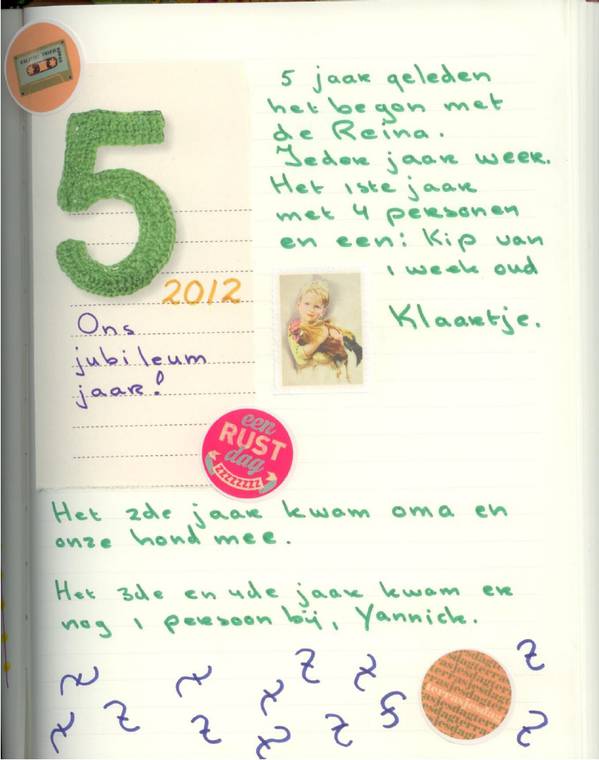 5
2012
Ons
jubileum
jaar!
5 jaar geleden
het begon met
de Reina.
Ieder jaar week.
Het 1ste jaar
met 4 personen
en een: Kip van
1 week oud
Klaartje.
een
RUST
dag
ZZZZZZZZ
Het 2de jaar kwam oma en
onze hond mee.
Het 3de en 4de jaar kwam er
nog 1 persoon bij, Yannick.
z z z z z z z z z z z z z